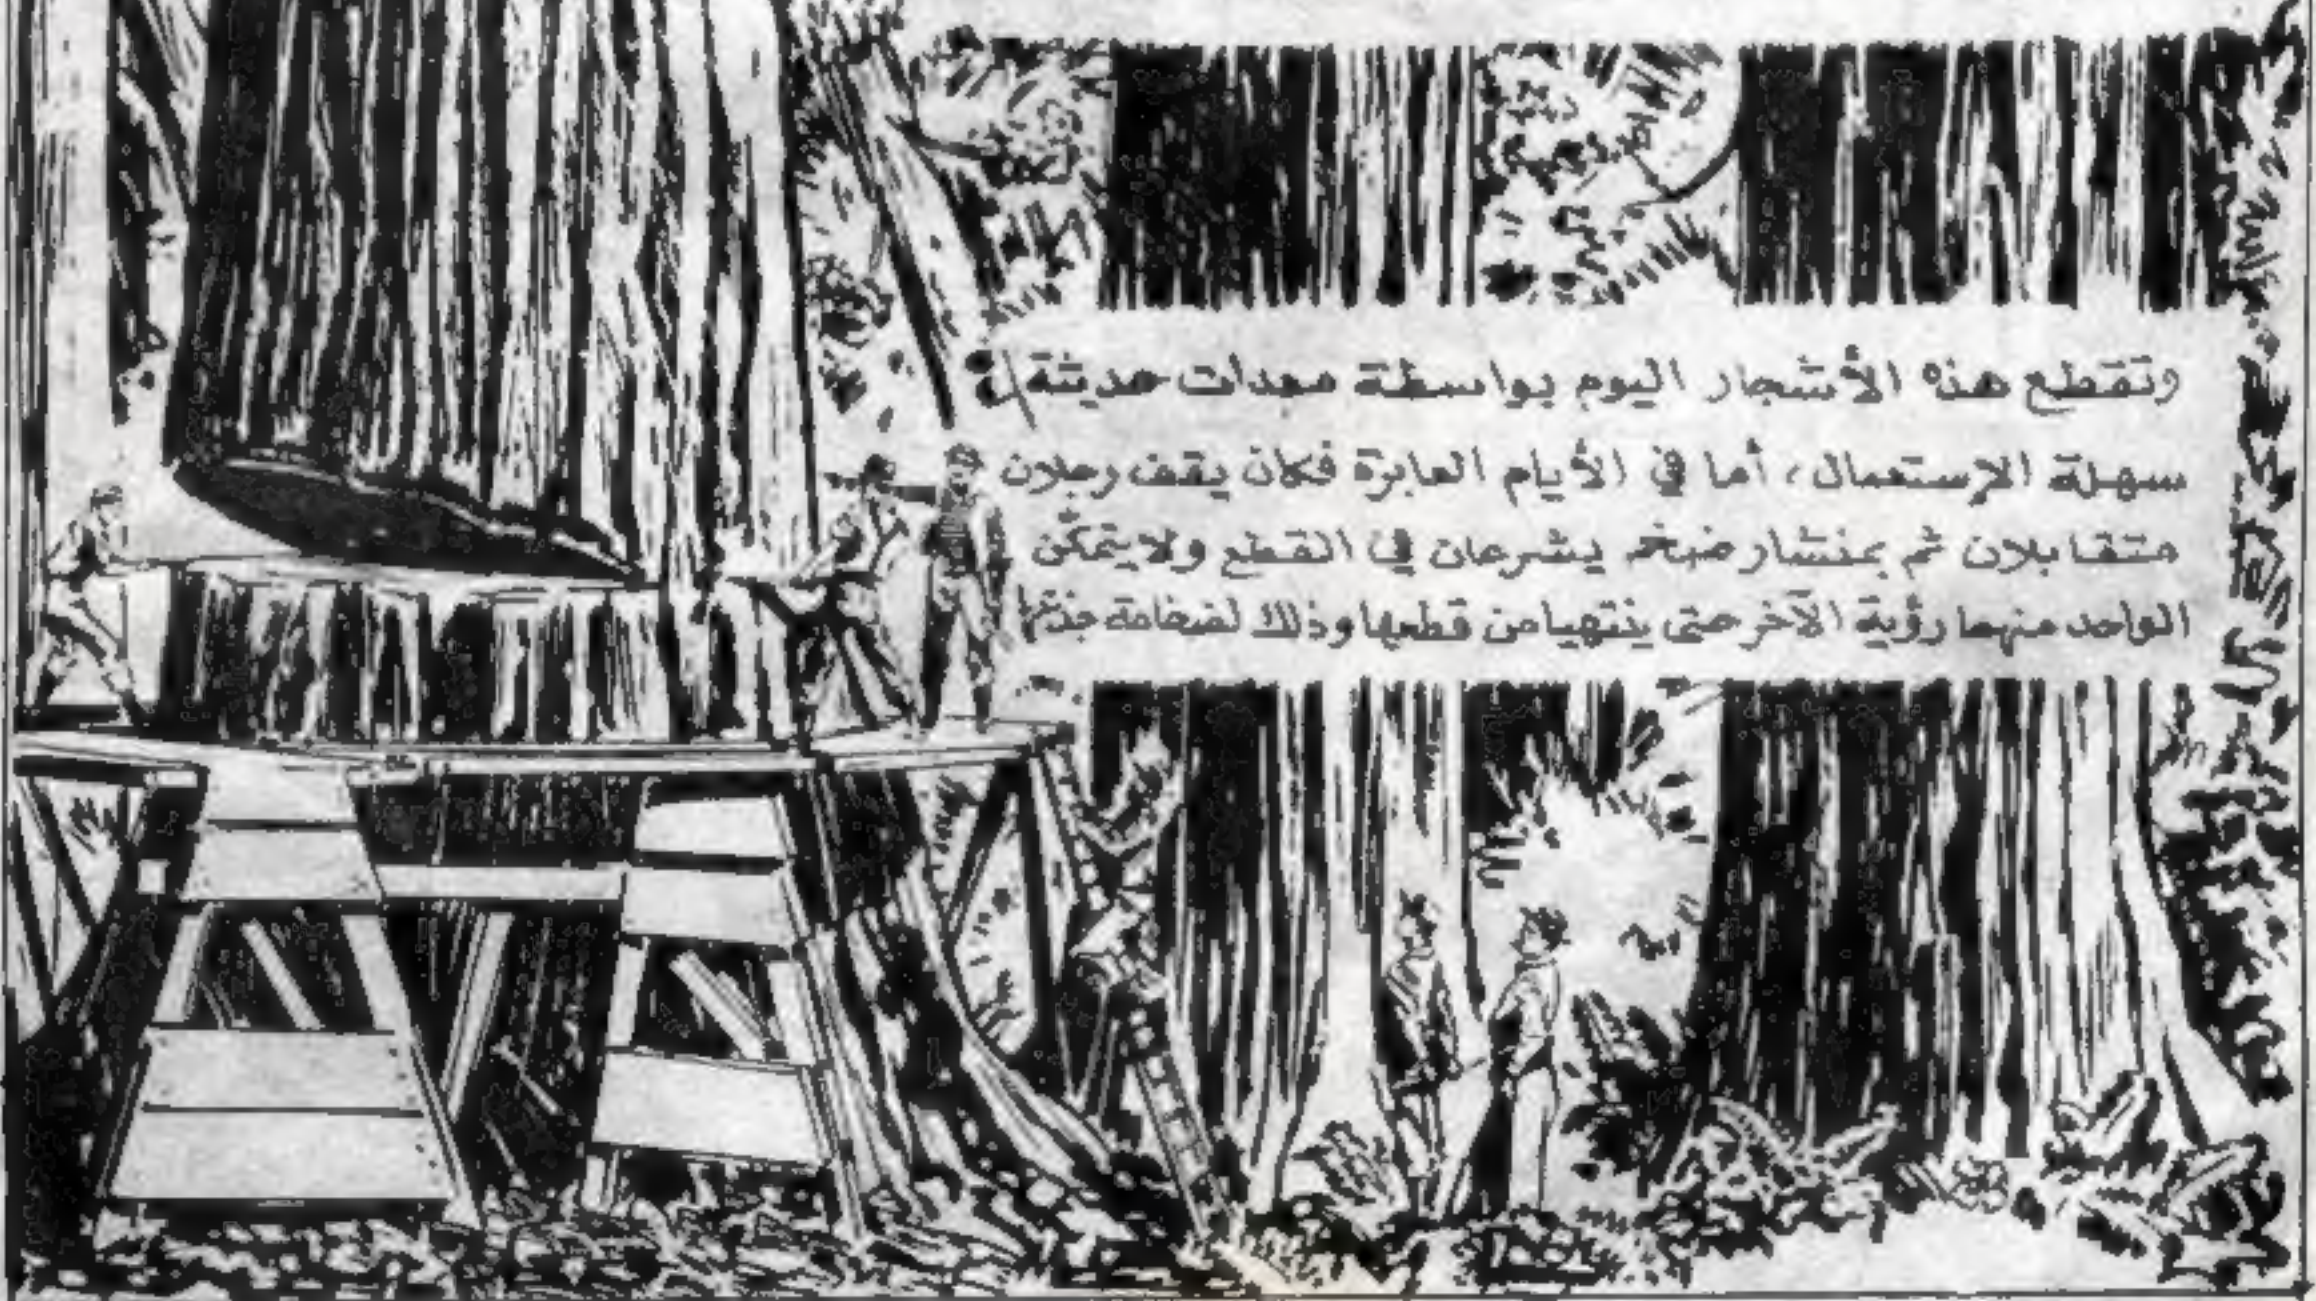 وتقطع هذه الأشجار اليوم بواسطة معدات حديثة
سهلة الإستعمال، أما في الأيام العابرة فكان يقف رجلان
متقابلان ثم بمنشار ضخم يشرعان في القطع ولا يتمكّن
الواحد منهما رؤية الآخر حتى ينتهيا من قطعها وذلك لضخامة جذعها